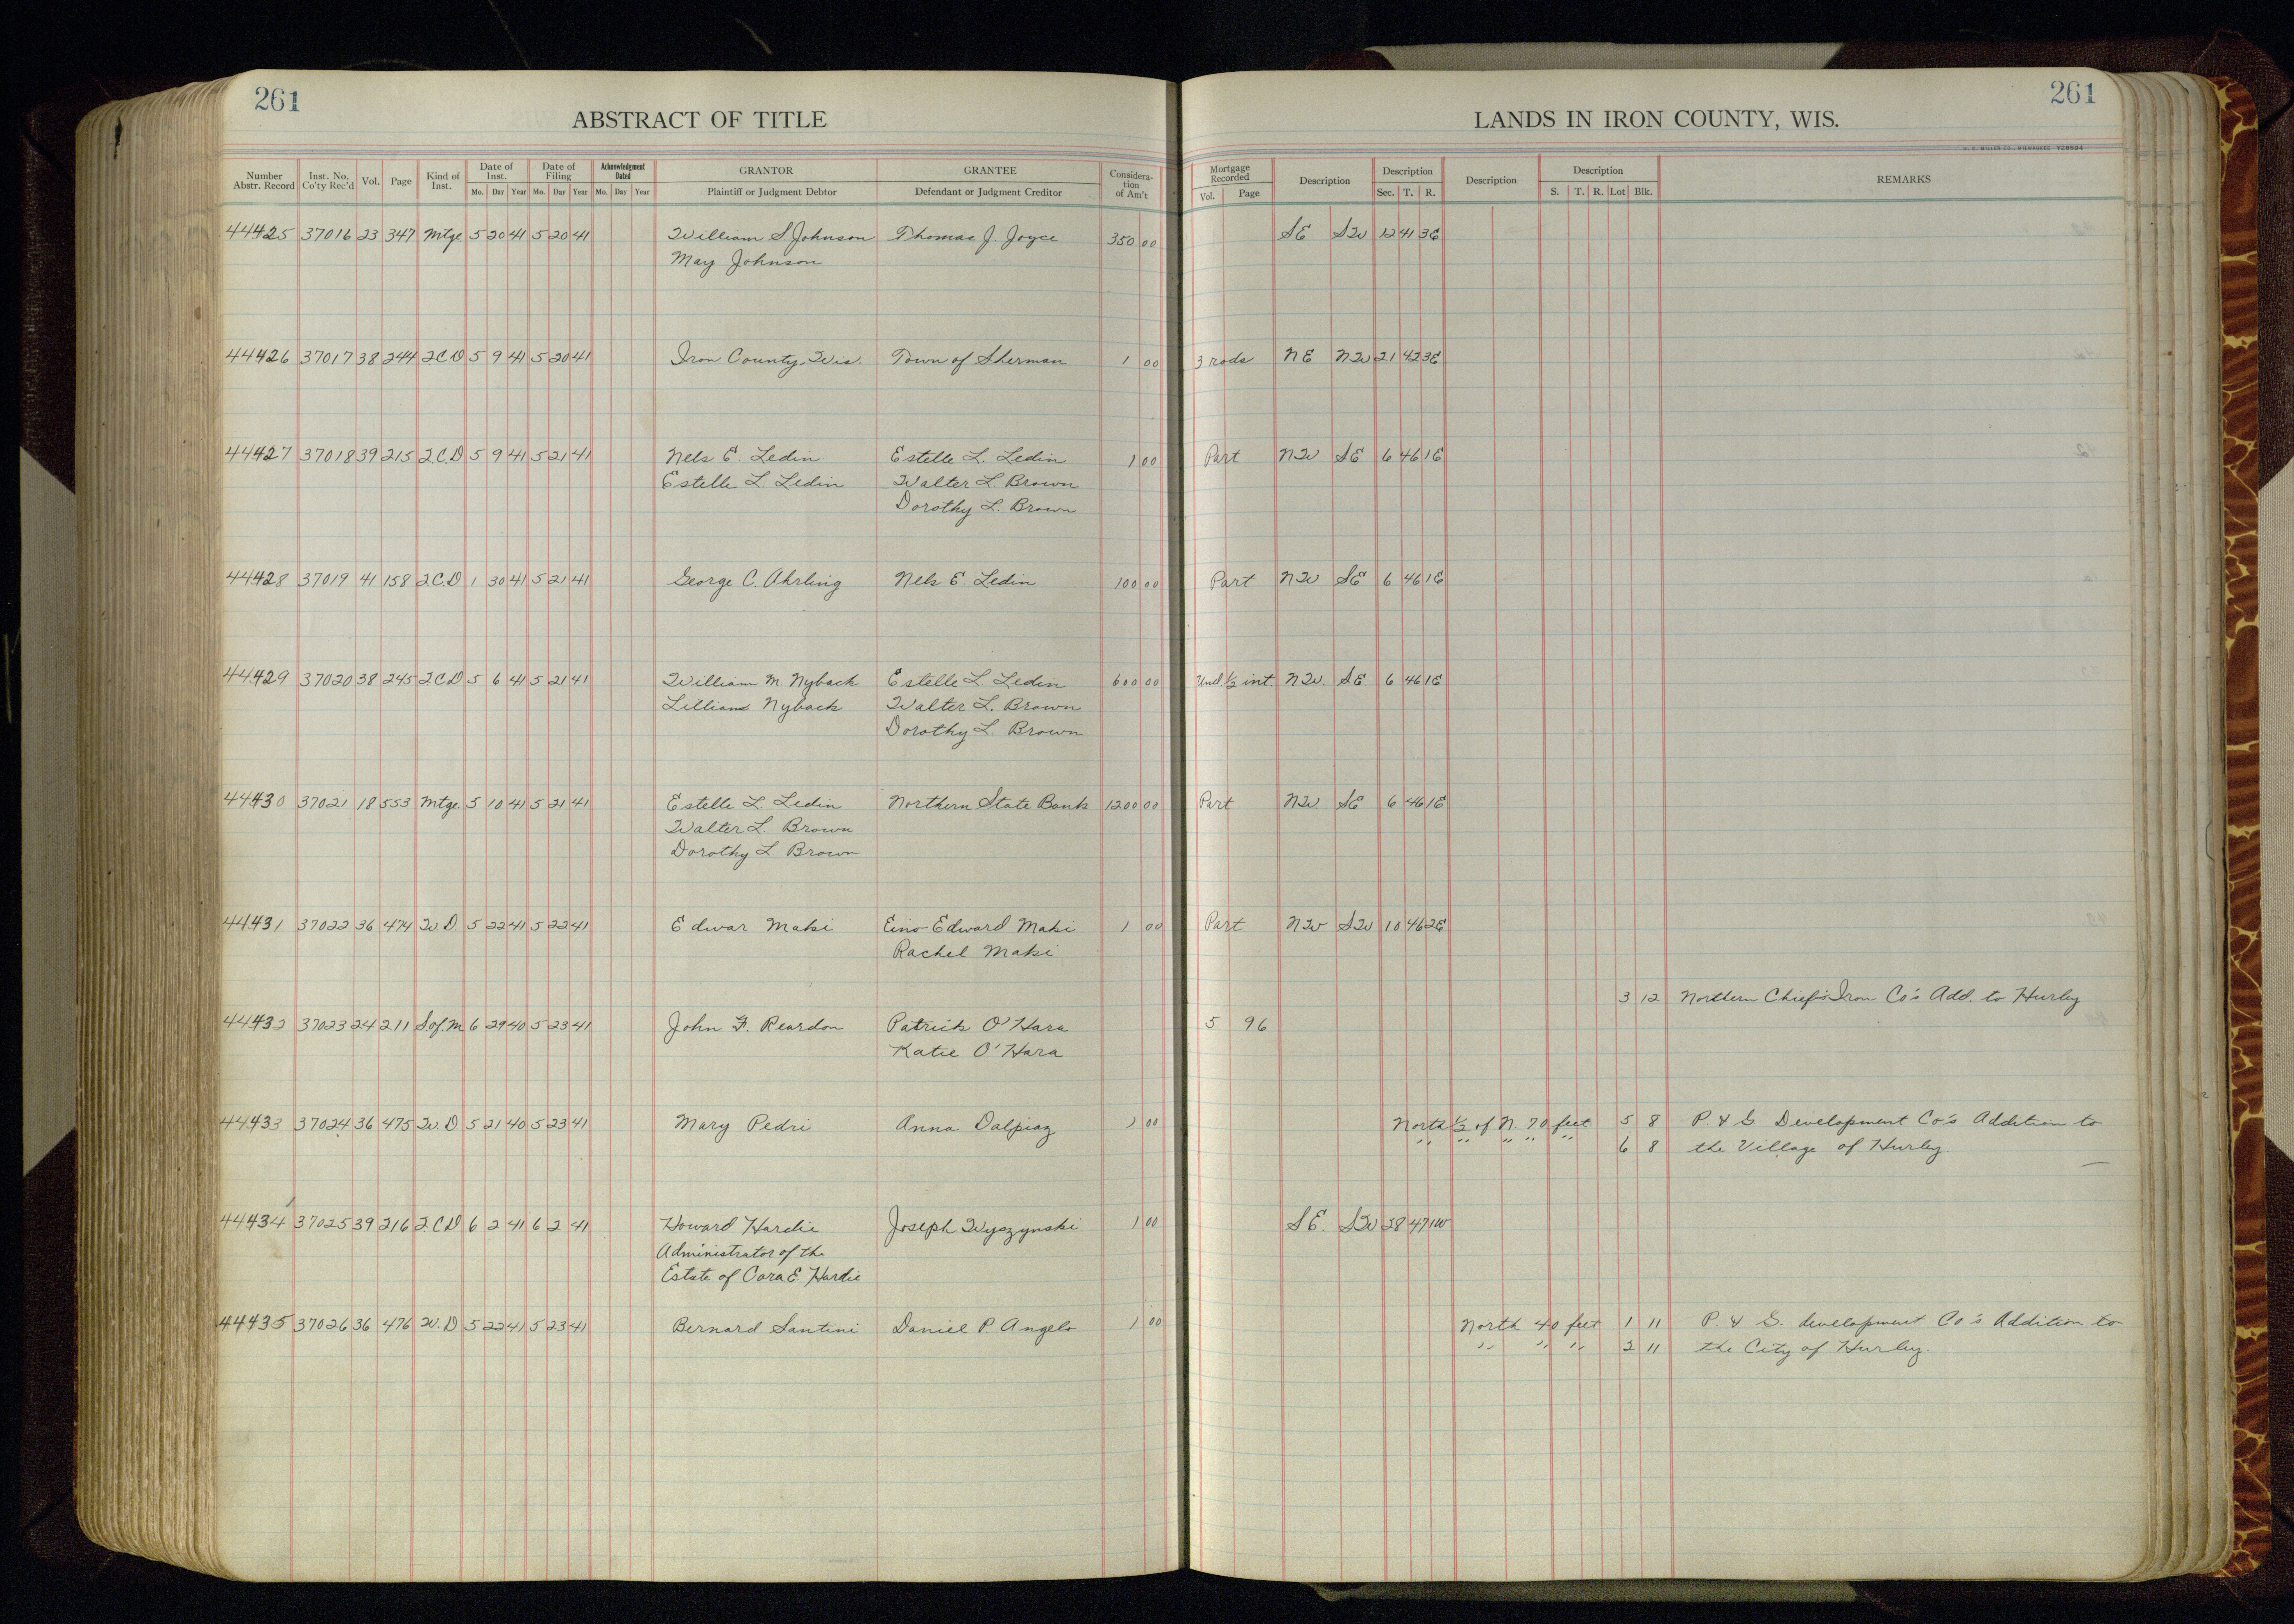 261
ABSTRACT OF TITLE
LANDS IN IRON COUNTY, WIS.
261
H. C. MILLER CO., MILWAUKEE Y28504
Number Abstr. Record | Inst. No. Co'ty Rec'd | Vol. | Page | Kind of Inst. | Date of Inst. Mo. Day Year | Date of Filing Mo. Day Year | Acknowledgment Dated Mo. Day Year | GRANTOR Plaintiff or Judgment Debtor | GRANTEE Defendant or Judgment Creditor | Consideration of Am't | Mortgage Recorded Vol. Page | Description | Description Sec. T. R. | Description | Description S. T. R. Lot Blk. | REMARKS
44425 37016 23 347 Mtge 5 20 41 5 20 41 William S. Johnson Thomas J. Joyce 350 00 SE SW 12 41 3E
May Johnson
44426 37017 38 244 2.C.D 5 9 41 5 20 41 Iron County, Wis. Town of Sherman 1 00 3 rods NE NW 21 42 3E
44427 37018 39 215 2.C.D 5 9 41 5 21 41 Nels E. Ledin Estelle L. Ledin 1 00 Part NW SE 6 46 1E
Estelle L. Ledin Walter L. Brown
Dorothy L. Brown
44428 37019 41 158 2.C.D 1 30 41 5 21 41 George C. Ahrling Nels E. Ledin 100 00 Part NW SE 6 46 1E
44429 37020 38 245 2.C.D 5 6 41 5 21 41 William M. Nyback Estelle L. Ledin 600 00 Und. 1/2 int. NW. SE 6 46 1E
Lillian Nyback Walter L. Brown
Dorothy L. Brown
44430 37021 18 553 Mtge. 5 10 41 5 21 41 Estelle L. Ledin Northern State Bank 1200 00 Part NW. SE 6 46 1E
Walter L. Brown
Dorothy L. Brown
44431 37022 36 474 W.D. 5 22 41 5 22 41 Edwar Maki Eino Edward Maki 1 00 Part NW SW 10 46 2E
Rachel Maki
3 12 Northern Chief's Iron Co's Add. to Hurley
44432 37023 24 211 S.of.M 6 29 40 5 23 41 John F. Reardon Patrick O'Hara 5 96
Katie O'Hara
44433 37024 36 475 W.D 5 21 40 5 23 41 Mary Pedri Anna Dalpiaz 1 00 North 1/2 of N. 70 feet 5 8 P. & G Development Co's Addition to
" " " " " 6 8 the Village of Hurley.
44434 37025 39 216 2.C.D 6 2 41 6 2 41 Howard Hardie Joseph Wyszynski 1 00 SE. SW 28 47 1W
Administrator of the
Estate of Cora E. Hardie
44435 37026 36 476 W.D 5 22 41 5 23 41 Bernard Santini Daniel P. Angelo 1 00 North 40 feet 1 11 P. & G. development Co's Addition to
" " " 2 11 the City of Hurley.